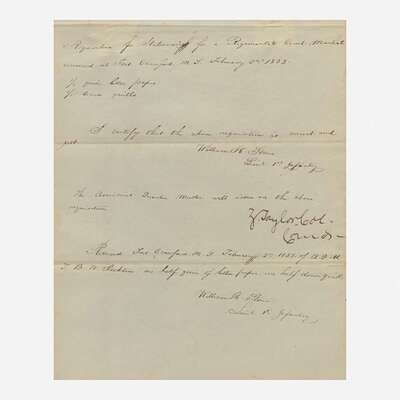 Requisition for Stationery for a Regimental Court Martial
convened at Fort Crawford M. T. February 5th 1833
½ quire letter paper
½ dozen quills
I certify that the above requisition is correct and
just
William H.
Lieut 1st Infantry
The Assistant Quarter Master will issue on the above
requisition
Z Taylor Col.
Comdg
Received Fort Crawford M. T. February of A. Q. M.
T. B. W. one half quire of letter paper one half dozen quills
William H.
Lieut 1st Infantry